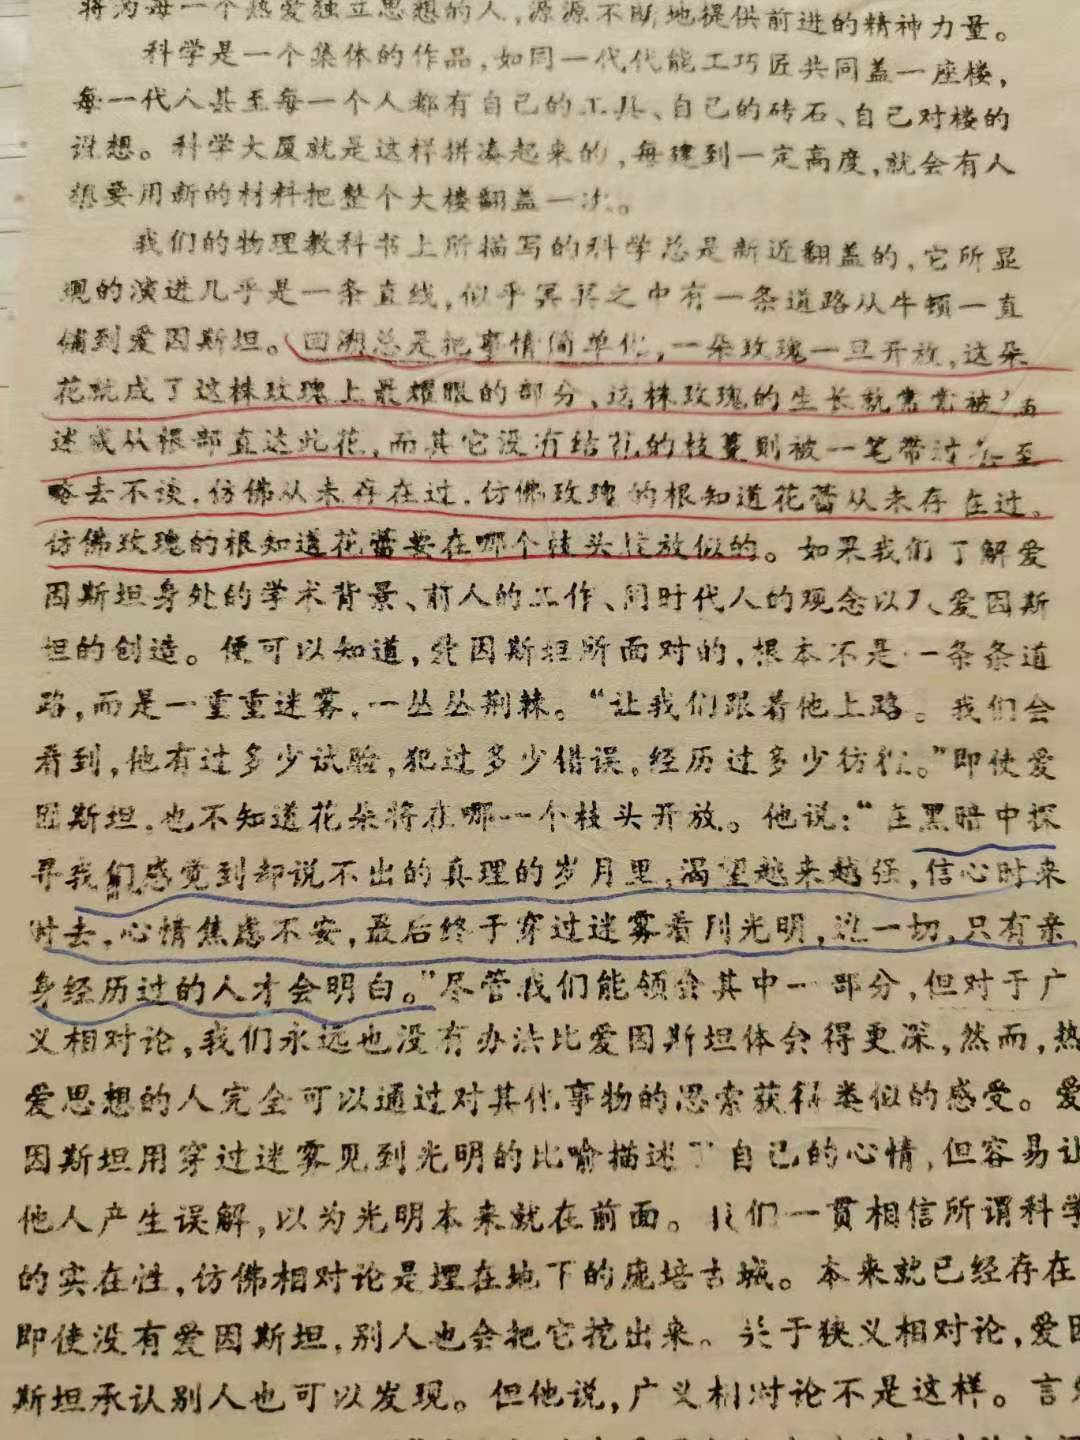 将为每一个热爱独立思想的人,源源不断地提供前进的精神力量。
科学是一个集体的作品,如同一代代能工巧匠共同盖一座楼,
每一代人甚至每一个人都有自己的工具、自己的砖石、自己对楼的
设想。科学大厦就是这样拼凑起来的,每建到一定高度,就会有人
想要用新的材料把整个大楼翻盖一次。
我们的物理教科书上所描写的科学总是新近翻盖的,它所显
现的演进几乎是一条直线,似乎冥冥之中有一条道路从牛顿一直
铺到爱因斯坦。回溯总是把事情简单化,一朵玫瑰一旦开放,这朵
花就成了这株玫瑰上最耀眼的部分,这株玫瑰的生长就常常被描
述成从根部直达此花,而其它没有结花的枝蔓则被一笔带过甚至
略去不谈,仿佛从未存在过,仿佛玫瑰的根知道花蕾从未存在过。
仿佛玫瑰的根知道花蕾要在哪个枝头绽放似的。如果我们了解爱
因斯坦身处的学术背景、前人的工作、同时代人的观念以及爱因斯
坦的创造。便可以知道,爱因斯坦所面对的,根本不是一条条道
路,而是一重重迷雾,一丛丛荆棘。“让我们跟着他上路。我们会
看到,他有过多少试验,犯过多少错误,经历过多少彷徨。”即使爱
因斯坦,也不知道花朵将在哪一个枝头开放。他说:“在黑暗中探
寻我们感觉到却说不出的真理的岁月里,渴望越来越强,信心时来
时去,心情焦虑不安,最后终于穿过迷雾看到光明,这一切,只有亲
身经历过的人才会明白。”尽管我们能领会其中一部分,但对于广
义相对论,我们永远也没有办法比爱因斯坦体会得更深,然而,热
爱思想的人完全可以通过对其他事物的思索获得类似的感受。爱
因斯坦用穿过迷雾见到光明的比喻描述了自己的心情,但容易让
他人产生误解,以为光明本来就在前面。我们一贯相信所谓科学
的实在性,仿佛相对论是埋在地下的庞培古城。本来就已经存在
即使没有爱因斯坦,别人也会把它挖出来。关于狭义相对论,爱因
斯坦承认别人也可以发现。但他说,广义相对论不是这样。言